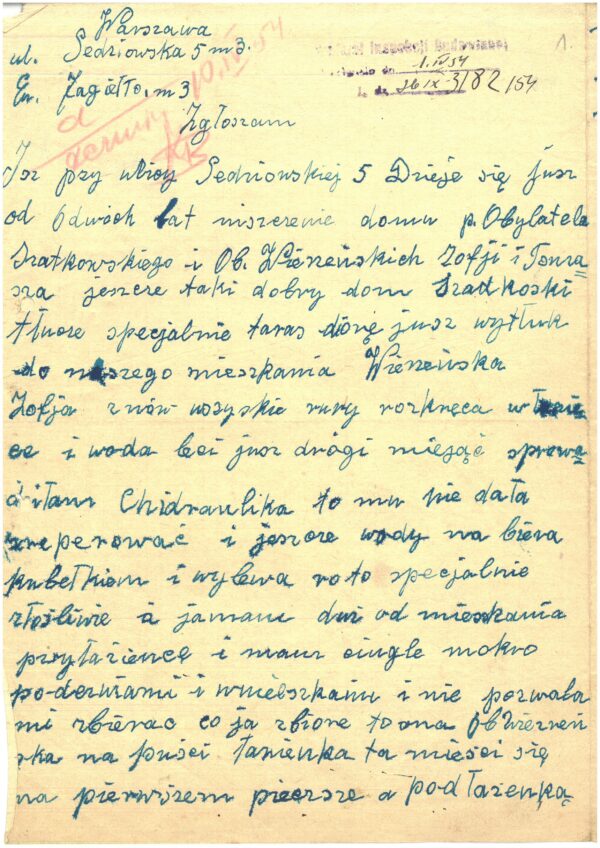 Warszawa
ul. Sedziowska 5 m 3.
Ew. Jagiełło, m 3
10.IV 54
Inspekcji Budowlanej
1.
1.IV 54
L. dz. 26 IX-3/82/54
Zgłoszam
Isz przy ulicy Sedziowskiej 5 Dzieje się jusz
od 6 dwóch lat niszczenie domu p. Obylatela
Szatkowskiego i Ob. Wierzeńskich Zofji i Toma=
sza jeszcze taki dobry dom Szatkoski
tłucze specjalnie taras diórę jusz wytłuk
do naszego mieszkania Wierzeńska
Zofja znów wszyskie rury rozkręca w
ce i woda leci jusz drógi miesąc sprowa=
dziłam Chidraulika to mu nie dała
zreperować i jeszcze wody na biera
kubełkiem i wylewa na to specjalnie
złośliwie a jamam dwi od mieszkania
przyłazience i mam cingle mokro
podedrzwiami i wmieszkaniu i nie pozwala
mi zbierac co ja zbiore to ona Ob Wierzeń
ska na puści łazienka ta mieści się
na pierwszem pientrze a podłazenką